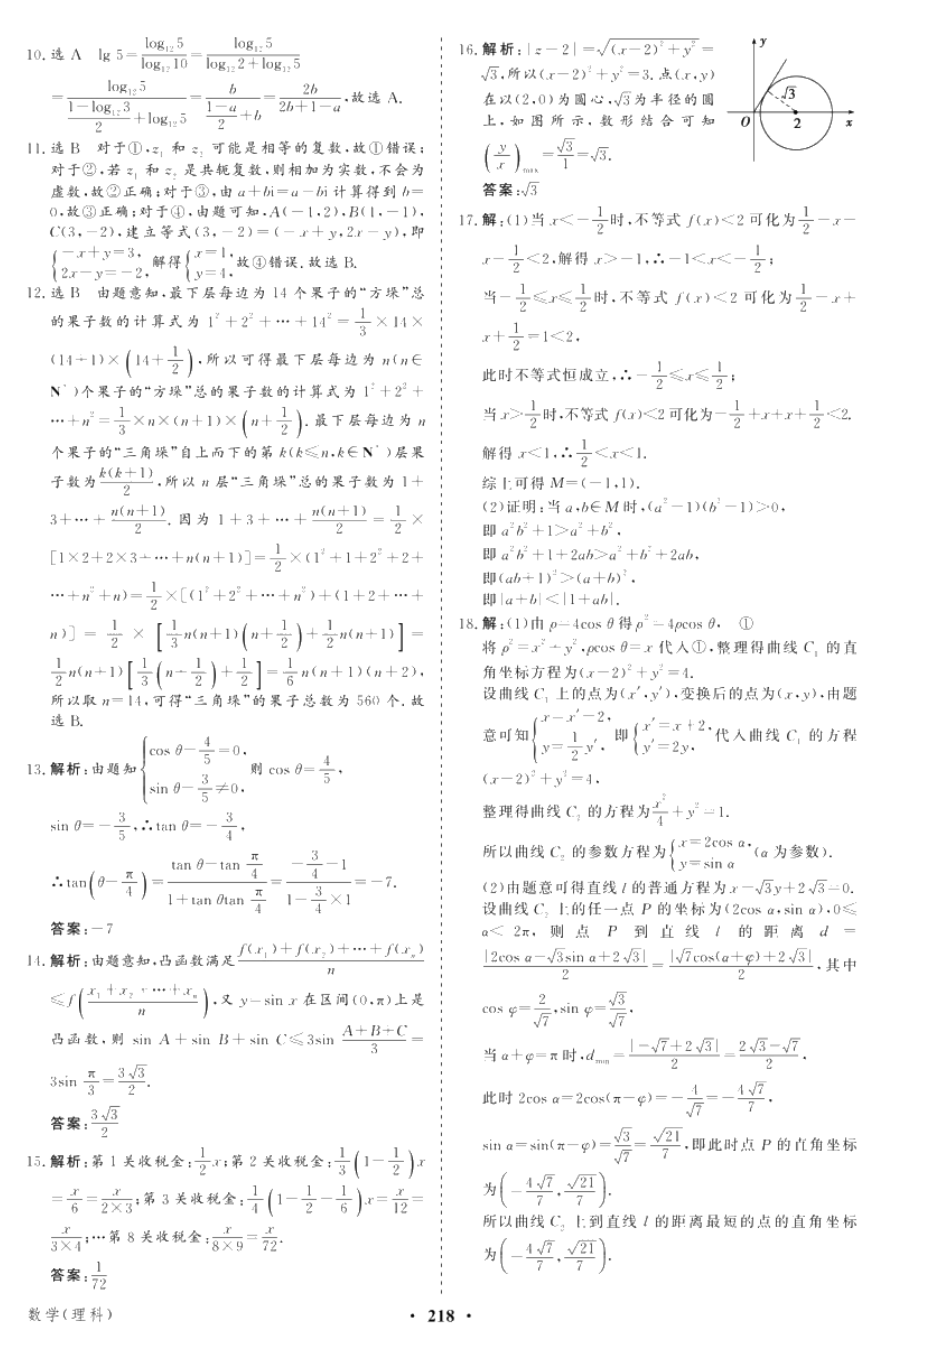 10. 选 A lg 5=log₁₂5/log₁₂10=log₁₂5/(log₁₂2+log₁₂5)
=log₁₂5/((1-log₁₂3)/2+log₁₂5)=b/((1-a)/2+b)=2b/(2b+1-a),故选 A.
11. 选 B 对于①,z₁ 和 z₂ 可能是相等的复数,故①错误;
对于②,若 z₁ 和 z₂ 是共轭复数,则相加为实数,不会为
虚数,故②正确;对于③,由 a+bi=a-bi 计算得到 b=
0,故③正确;对于④,由题可知,A(-1,2),B(1,-1),
C(3,-2),建立等式(3,-2)=(-x+y,2x-y),即
{-x+y=3, 2x-y=-2, 解得{x=1, y=4, 故④错误.故选 B.
12. 选 B 由题意知,最下层每边为 14 个果子的“方垛”总
的果子数的计算式为 1²+2²+…+14²=1/3×14×
(14+1)×(14+1/2),所以可得最下层每边为 n(n∈
N*)个果子的“方垛”总的果子数的计算式为 1²+2²+
…+n²=1/3×n×(n+1)×(n+1/2).最下层每边为 n
个果子的“三角垛”自上而下的第 k(k≤n,k∈N*)层果
子数为k(k+1)/2,所以 n 层“三角垛”总的果子数为 1+
3+…+n(n+1)/2.因为 1+3+…+n(n+1)/2=1/2×
[1×2+2×3+…+n(n+1)]=1/2×(1²+1+2²+2+
…+n²+n)=1/2×[(1²+2²+…+n²)+(1+2+…+
n)]=1/2×[1/3n(n+1)(n+1/2)+1/2n(n+1)]=
1/2n(n+1)[1/3(n+1/2)+1/2]=1/6n(n+1)(n+2),
所以取 n=14,可得“三角垛”的果子总数为 560 个.故
选 B.
13. 解析:由题知{cos θ-4/5=0, sin θ-3/5≠0, 则 cos θ=4/5,
sin θ=-3/5,∴tan θ=-3/4,
∴tan(θ-π/4)=(tan θ-tan π/4)/(1+tan θtan π/4)=(-3/4-1)/(1-3/4×1)=-7.
答案:-7
14. 解析:由题意知,凸函数满足(f(x₁)+f(x₂)+…+f(xₙ))/n
≤f((x₁+x₂+…+xₙ)/n),又 y=sin x 在区间(0,π)上是
凸函数,则 sin A+sin B+sin C≤3sin (A+B+C)/3=
3sin π/3=3√3/2.
答案:3√3/2
15. 解析:第 1 关收税金:1/2x;第 2 关收税金:1/3(1-1/2)x
=x/6=x/(2×3);第 3 关收税金:1/4(1-1/2-1/6)x=x/12=
x/(3×4);…第 8 关收税金:x/(8×9)=x/72.
答案:1/72
16. 解析:|z-2|=√((x-2)²+y²)=
√3,所以(x-2)²+y²=3.点(x,y)
在以(2,0)为圆心,√3为半径的圆
上,如图所示,数形结合可知
(y/x)max=√3/1=√3.
y
√3
O 2 x
答案:√3
17. 解:(1)当 x<-1/2时,不等式 f(x)<2 可化为1/2-x-
x-1/2<2,解得 x>-1,∴-1<x<-1/2;
当-1/2≤x≤1/2时,不等式 f(x)<2 可化为1/2-x+
x+1/2=1<2,
此时不等式恒成立,∴-1/2≤x≤1/2;
当 x>1/2时,不等式 f(x)<2 可化为-1/2+x+x+1/2<2.
解得 x<1,∴1/2<x<1.
综上可得 M=(-1,1).
(2)证明:当 a,b∈M 时,(a²-1)(b²-1)>0,
即 a²b²+1>a²+b²,
即 a²b²+1+2ab>a²+b²+2ab,
即(ab+1)²>(a+b)²,
即|a+b|<|1+ab|.
18. 解:(1)由 ρ=4cos θ得 ρ²=4ρcos θ, ①
将 ρ²=x²+y²,ρcos θ=x 代入①,整理得曲线 C₁ 的直
角坐标方程为(x-2)²+y²=4.
设曲线 C₁ 上的点为(x′,y′),变换后的点为(x,y),由题
意可知{x=x′-2, y=1/2y′, 即{x′=x+2, y′=2y, 代入曲线 C₁ 的方程
(x-2)²+y²=4,
整理得曲线 C₂ 的方程为x²/4+y²=1.
所以曲线 C₂ 的参数方程为{x=2cos α, y=sin α (α 为参数).
(2)由题意可得直线 l 的普通方程为 x-√3y+2√3=0.
设曲线 C₂ 上的任一点 P 的坐标为(2cos α,sin α),0≤
α<2π,则点 P 到直线 l 的距离 d=
|2cos α-√3sin α+2√3|/2=|√7cos(α+φ)+2√3|/2,其中
cos φ=2/√7,sin φ=√3/√7,
当 α+φ=π 时,dmin=|-√7+2√3|/2=(2√3-√7)/2,
此时 2cos α=2cos(π-φ)=-4/√7=-4√7/7,
sin α=sin(π-φ)=√3/√7=√21/7,即此时点 P 的直角坐标
为(-4√7/7,√21/7).
所以曲线 C₂ 上到直线 l 的距离最短的点的直角坐标
为(-4√7/7,√21/7).
数学(理科)
· 218 ·